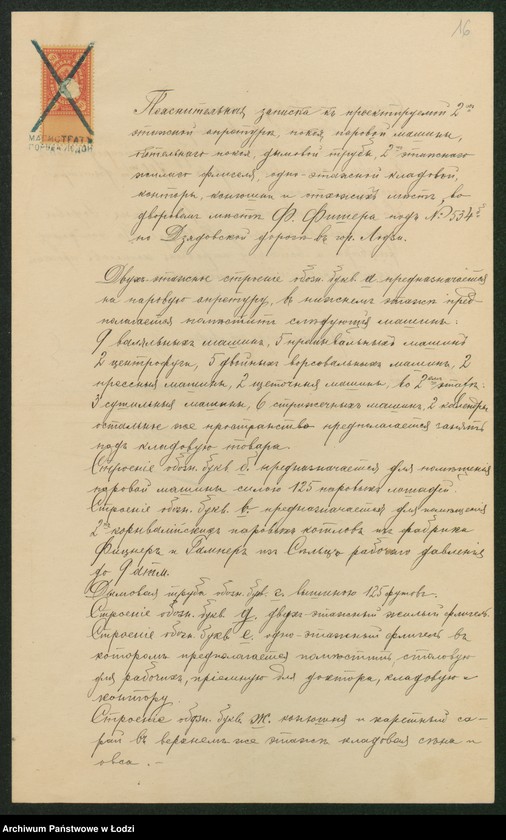 16
МАГИСТРАТЪ
ГОРОДА ЛОДЗИ
Пояснительная записка къ проектируемой 2хъ
этажной апретуры, покоя паровой машины,
котельнаго покоя, дымовой трубы, 2хъ этажнаго
жилаго флигеля, одно-этажной кладовой,
конторы, конюшни и отхожихъ мѣстъ, во
дворовомъ мѣстѣ Ф. Фишера подъ № 534
по Дзядовской дорогѣ въ гор. Лодзи.
Двухъ этажное строеніе обозн. букв. а предназначается
на паровую апретуру, въ нижнемъ этажѣ пред-
полагается помѣстить слѣдующія машины:
9 валяльныхъ машинъ, 5 промывальныхъ машинъ
2 центрофуги, 5 двойныхъ ворсовальныхъ машинъ, 2
прессныя машины, 2 щеточныя машины, во 2омъ этажѣ:
3 сушильныя машины, 6 стрижечныхъ машинъ, 2 каландры
остальное же пространство предполагается занять
подъ кладовую товара.
Строеніе обозн. букв. б. предназначается для помѣщенія
паровой машины силою 125 паровыхъ лошадей.
Строеніе обозн. букв. в. предназначается для помѣщенія
2хъ корнвалійскихъ паровыхъ котловъ изъ фабрики
Фицнеръ и Гамперъ изъ Сельцъ рабочаго давленія
до 9 атм.
Дымовая труба обозн. бук. г. вышиною 125 футовъ.
Строеніе обозн. букв. д. двухъ этажный жилый флигель.
Строеніе обозн. букв. е. одно-этажный флигель въ
которомъ предполагается помѣстить столовую
для рабочихъ, пріемную для доктора, кладовую и
контору.
Строеніе обозн. букв. ж. конюшня и каретный са-
рай въ верхнемъ же этажѣ кладовая сѣна и
овса. -
Archiwum Państwowe w Łodzi